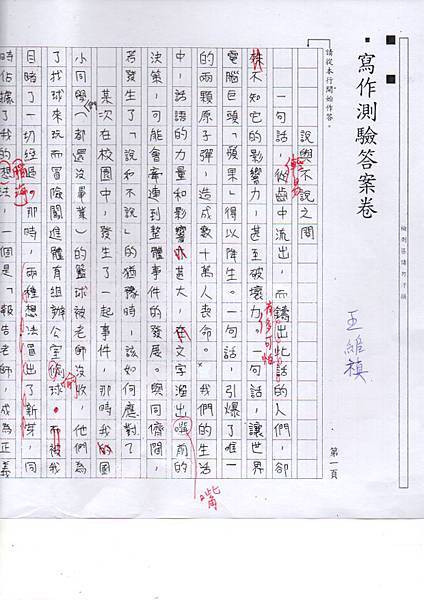 寫作測驗答案卷
王維禛
第一頁
請從本行開始作答。
說與不說之間
一句話,從齒中流出,而鑄出此話的人們,卻
殊不知它的影響力,甚至破壞力。一句話,讓世界
有多可怕
電腦巨頭「蘋果」得以降生。一句話,引爆了唯一
的兩顆原子彈,造成數十萬人喪命。我們的生活
中,話語的力量和影響亦甚大,在文字溢出嘴前的
嘴
決策,可能會牽連到整體事件的發展。與同儕間,
若發生了「說和不說」的猶豫時,該如何應對了
某次在校園中,發生了一起事件,那時我的國
小同學(都還沒畢業)的籃球被老師沒收,他們為
們
了找球來玩而冒險闖進體育組辦公室偷球。而被我
偷
目睹了一切經過。那時,兩種想法冒出了新芽,同
腦海
時佔據了我的想法,一個是「報告老師,成為正義